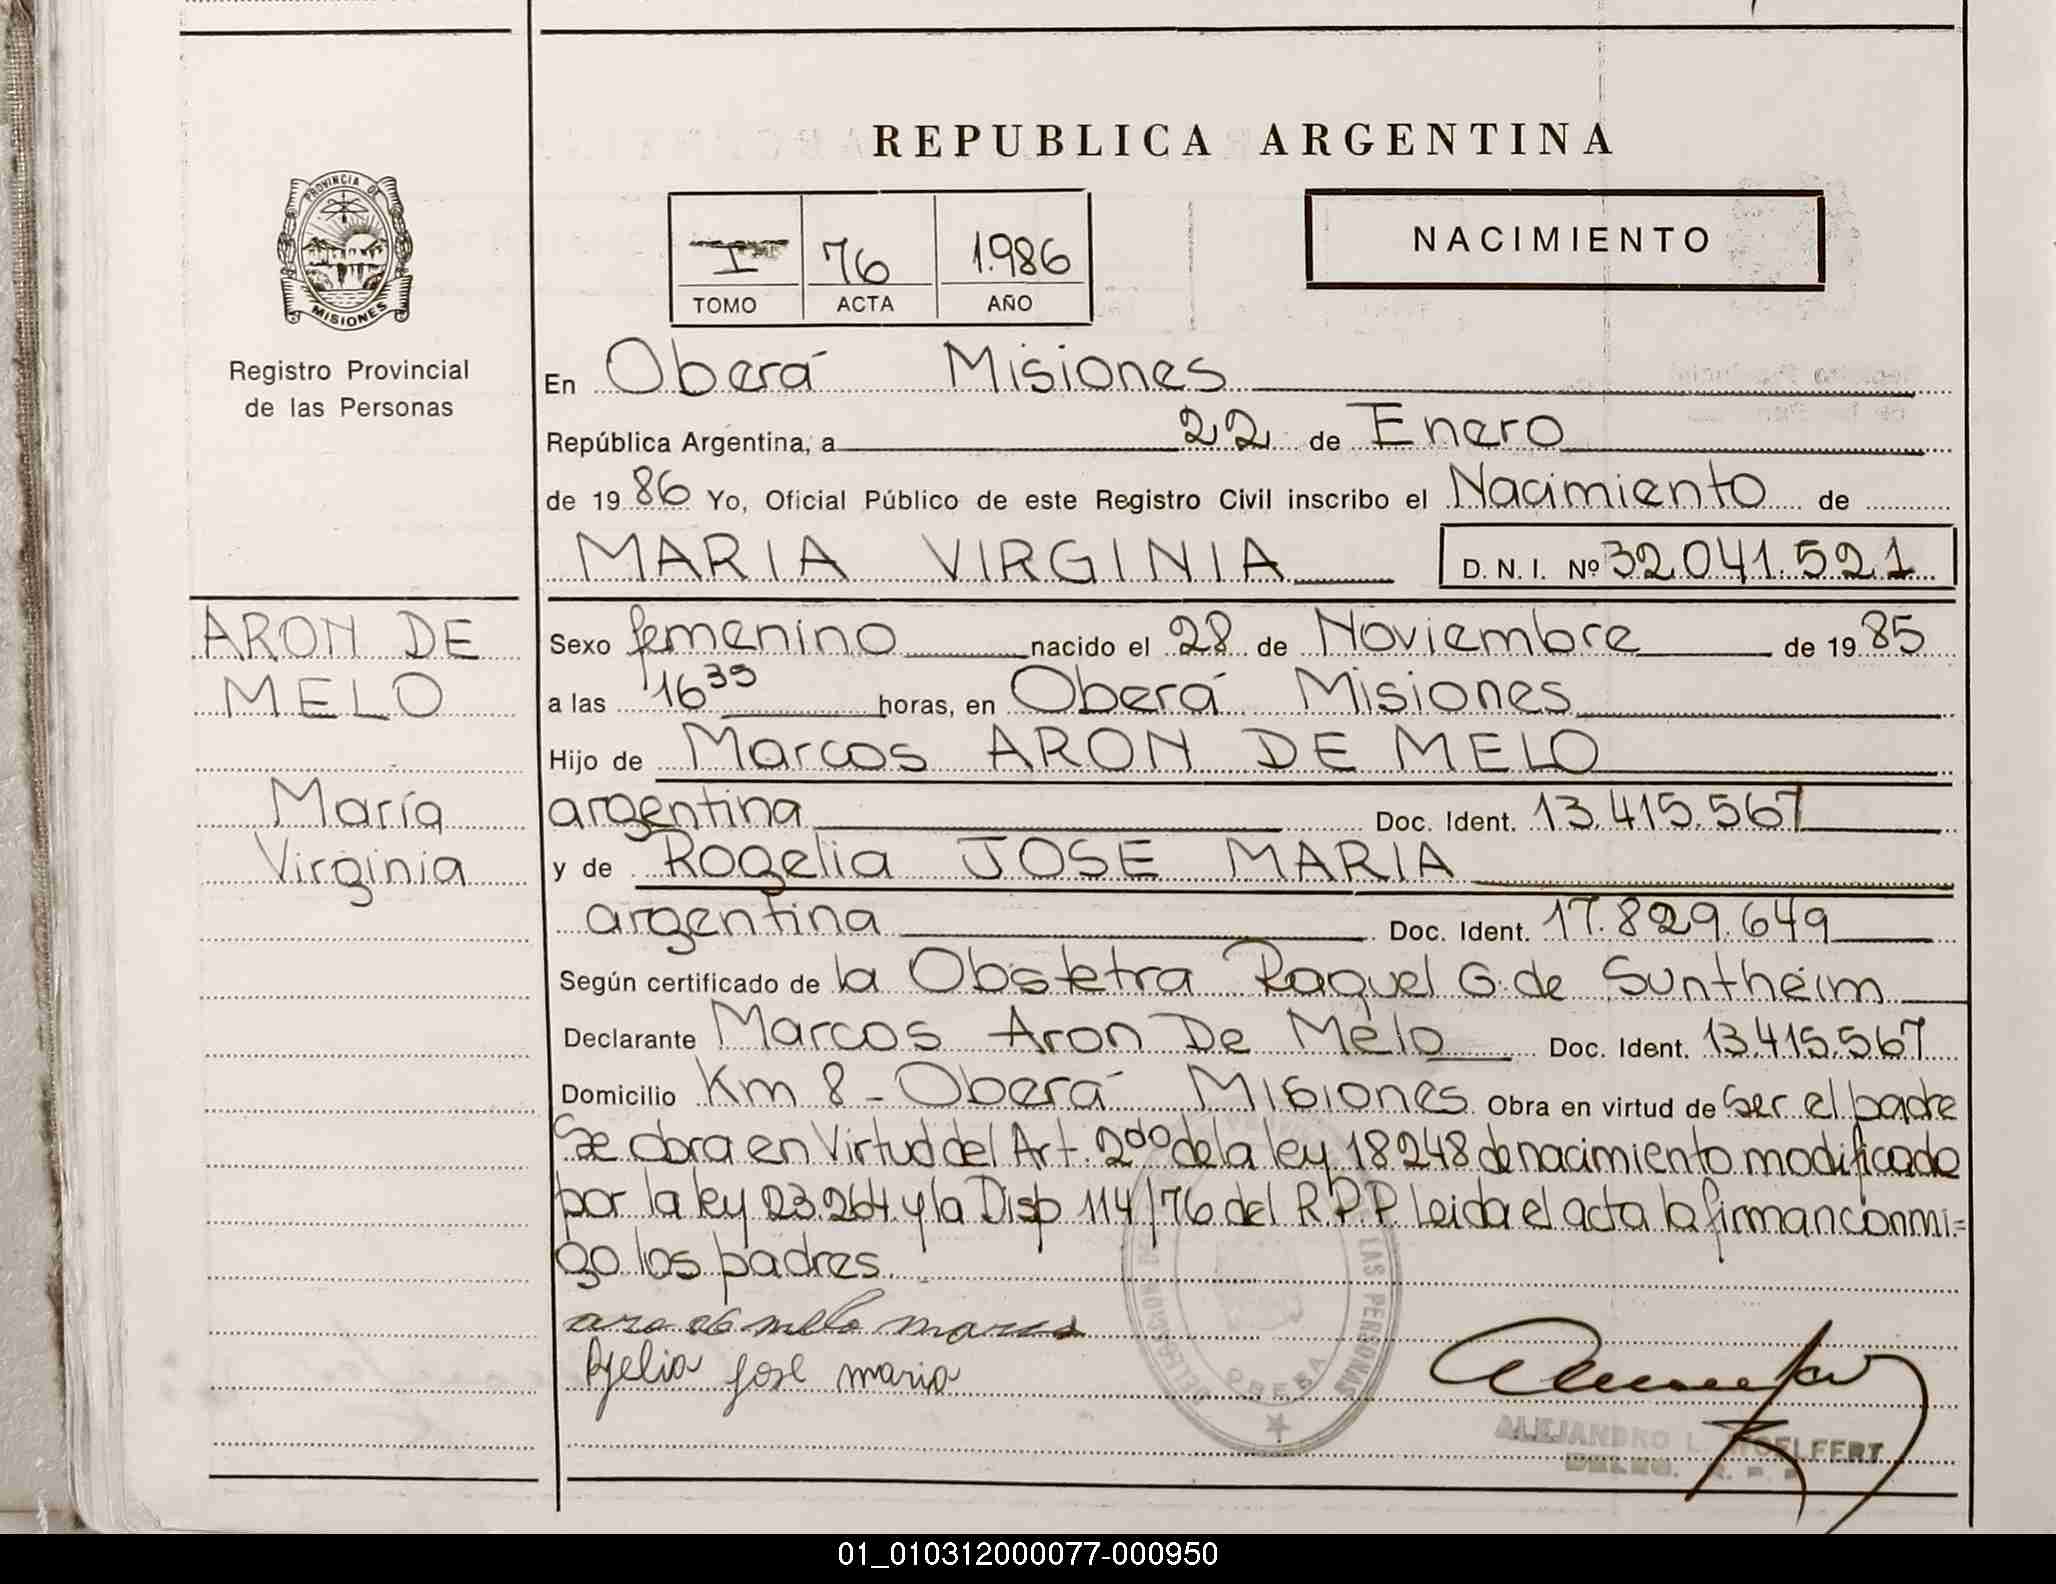 REPUBLICA ARGENTINA
PROVINCIA DE
MISIONES
Registro Provincial
de las Personas
I 76 1.986
TOMO ACTA AÑO
NACIMIENTO
En Oberá Misiones
República Argentina, a 22 de Enero
de 19 86 Yo, Oficial Público de este Registro Civil inscribo el Nacimiento de
MARIA VIRGINIA D. N. I. Nº 32.041.521
ARON DE
MELO
María
Virginia
Sexo femenino nacido el 28 de Noviembre de 19 85
a las 16 35 horas, en Oberá Misiones
Hijo de Marcos ARON DE MELO
argentina Doc. Ident. 13.415.567
y de Rogelia JOSE MARIA
argentina Doc. Ident. 17.829.649
Según certificado de la Obstetra Raquel G. de Suntheim
Declarante Marcos Aron De Melo Doc. Ident. 13.415.567
Domicilio Km 8 - Oberá Misiones Obra en virtud de Ser el padre
Se obra en Virtud del Art. 2do de la ley 18248 de nacimiento modificado
por la ley 23.264 y la Disp 114/76 del R.P.P Leida el acta la firman conmi=
go los padres.
melo marcos
Rogelia jose maria
DELEGACION LAS PERSONAS
OBERA
ALEJANDRO L.
01_010312000077-000950